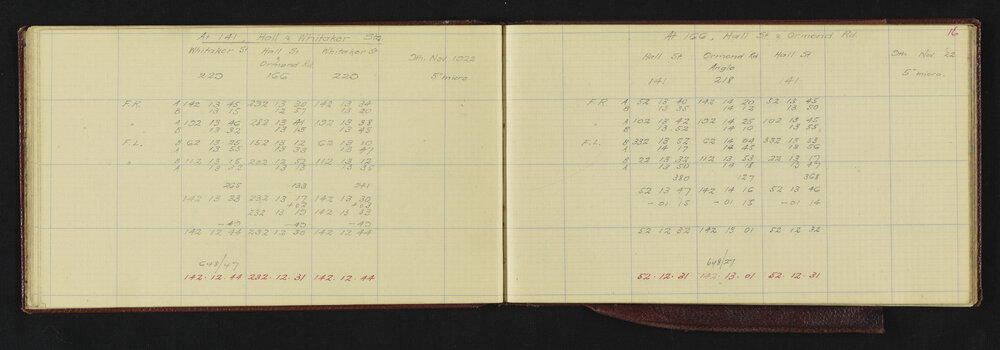 At 141, Hall & Whitaker Sts
Whitaker St Hall St Whitaker St
& 9th. Nov. 1922
Ormond Rd
220 166 220 5" micro.
F.R. A 142 13 45 232 13 20 142 13 34
B 13 15 12 57 13 20
" A 192 13 46 282 13 41 192 13 38
B 13 32 13 15 13 45
F.L. B 62 13 25 152 13 12 62 13 10
A 13 53 13 33 13 47
" B 112 13 15 202 12 52 112 13 12
A 13 32 13 13 13 35
265 133 241
142 13 23 232 13 17 142 13 30
+02 +03
232 13 19 142 13 33
-49 -49 -49
142 12 44 232 12 30 142 12 44
648/47
142.12.44 232.12.31 142.12.44
At 166, Hall St & Ormond Rd. 16
Hall St Ormond Rd Hall St 9th. Nov. '22
Angle
141 218 141 5" micro.
F.R. A 52 13 40 142 14 20 52 13 45
B 13 35 14 12 13 50
" A 102 13 42 192 14 25 102 13 45
B 13 52 14 10 13 55
F.L. B 332 13 52 62 14 04 332 13 33
A 14 17 14 45 13 56
" B 22 13 32 112 13 53 22 13 17
A 13 50 14 18 13 47
380 127 368
52 13 47 142 14 16 52 13 46
-01 15 -01 15 -01 14
52 12 32 142 13 01 52 12 32
648/27
52.12.31 142.13.01 52.12.31